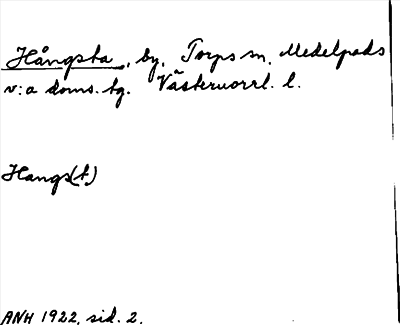 Hångsta, by, Torps sn, Medelpads
v:a doms.tg. Västernorrl. l.
Hangs(t)
ANH 1922, sid. 2.